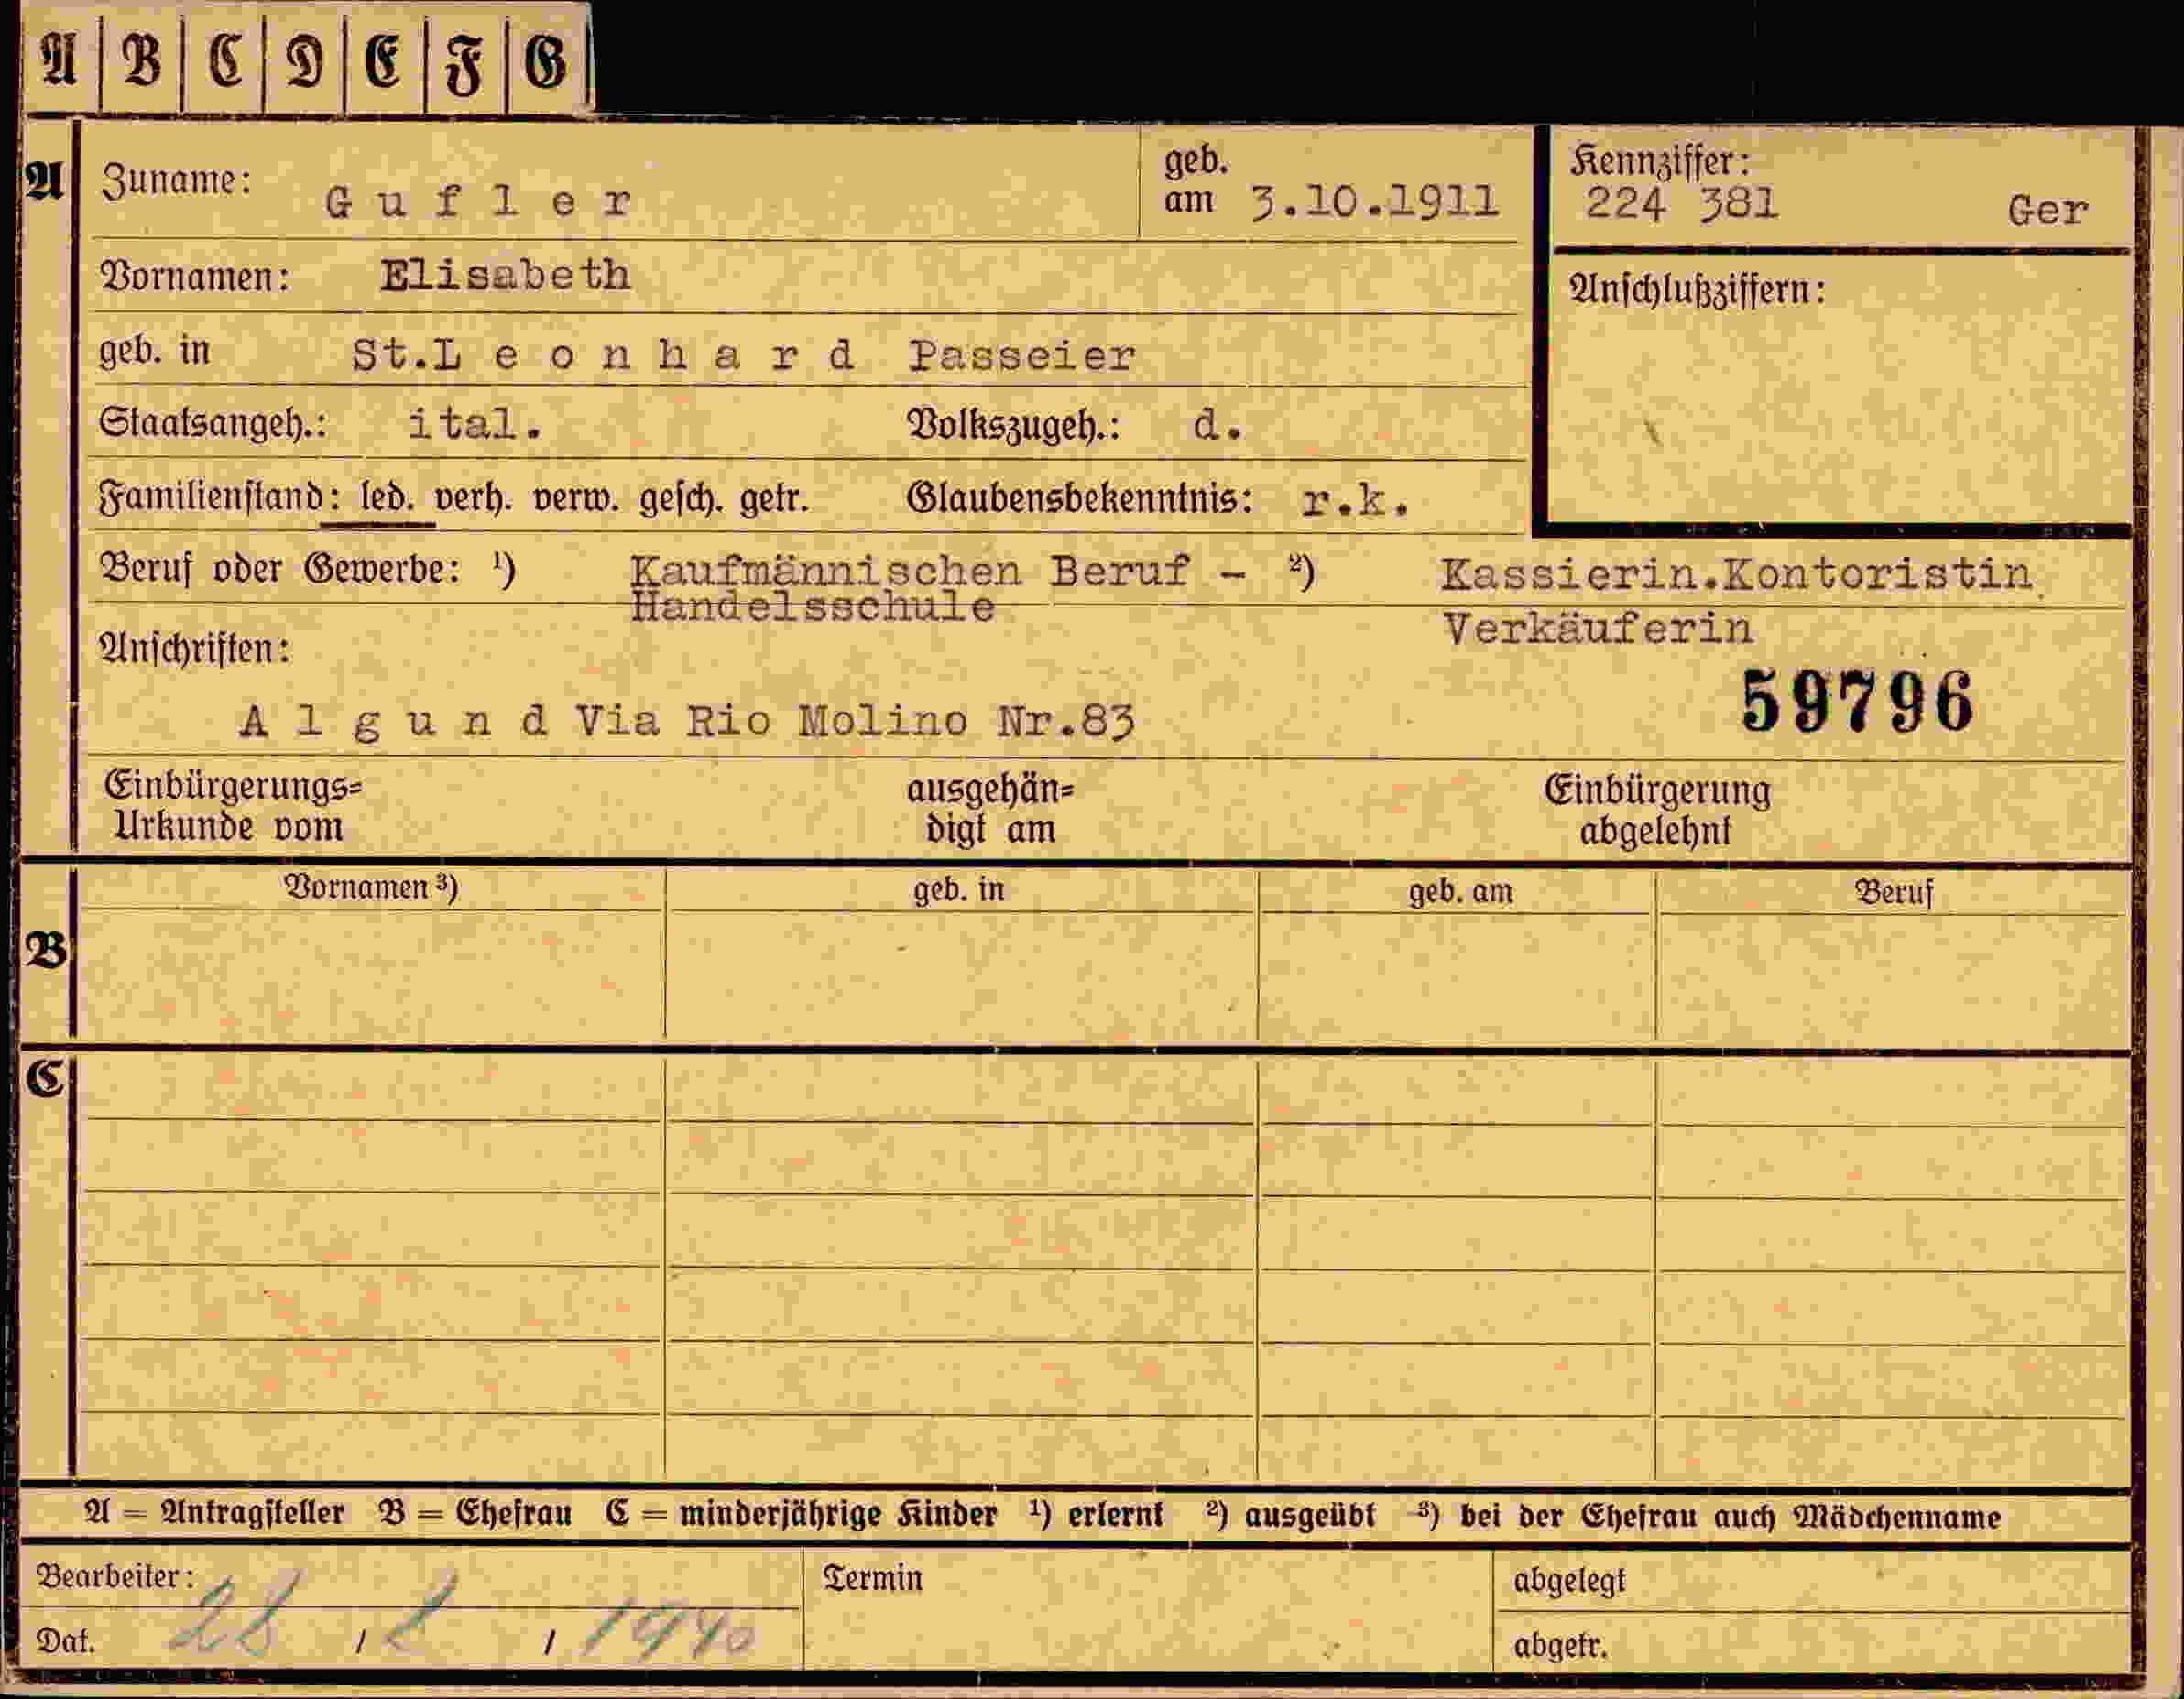 A B C D E F G
A Zuname: Gufler geb. am 3.10.1911 Kennziffer: 224 381 Ger
Vornamen: Elisabeth Anschlußziffern:
geb. in St.Leonhard Passeier
Staatsangeh.: ital. Volkszugeh.: d.
Familienstand: led. verh. verw. gesch. getr. Glaubensbekenntnis: r.k.
Beruf oder Gewerbe: ¹) Kaufmännischen Beruf - ²) Kassierin.Kontoristin
Handelsschule Verkäuferin
Anschriften:
59796
Algund Via Rio Molino Nr.83
Einbürgerungs= ausgehän= Einbürgerung
Urkunde vom digt am abgelehnt
Vornamen ³) geb. in geb. am Beruf
B
C
A = Antragsteller B = Ehefrau C = minderjährige Kinder ¹) erlernt ²) ausgeübt ³) bei der Ehefrau auch Mädchenname
Bearbeiter: Termin abgelegt
Dat. 28 / 8 / 1940 abgetr.